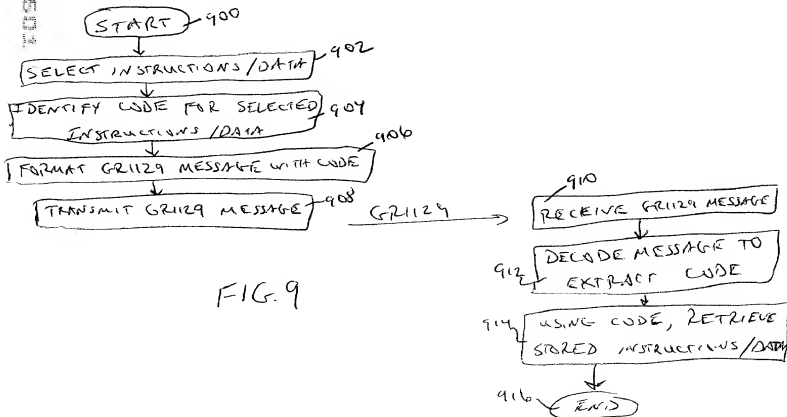 START 900
SELECT INSTRUCTIONS/DATA 902
IDENTIFY CODE FOR SELECTED
INSTRUCTIONS/DATA 904
FORMAT GR1129 MESSAGE WITH CODE 906
TRANSMIT GR1129 MESSAGE 908
GR1129
910
RECEIVE GR1129 MESSAGE
DECODE MESSAGE TO
912 EXTRACT CODE
914 USING CODE, RETRIEVE
STORED INSTRUCTIONS/DATA
916 END
FIG. 9